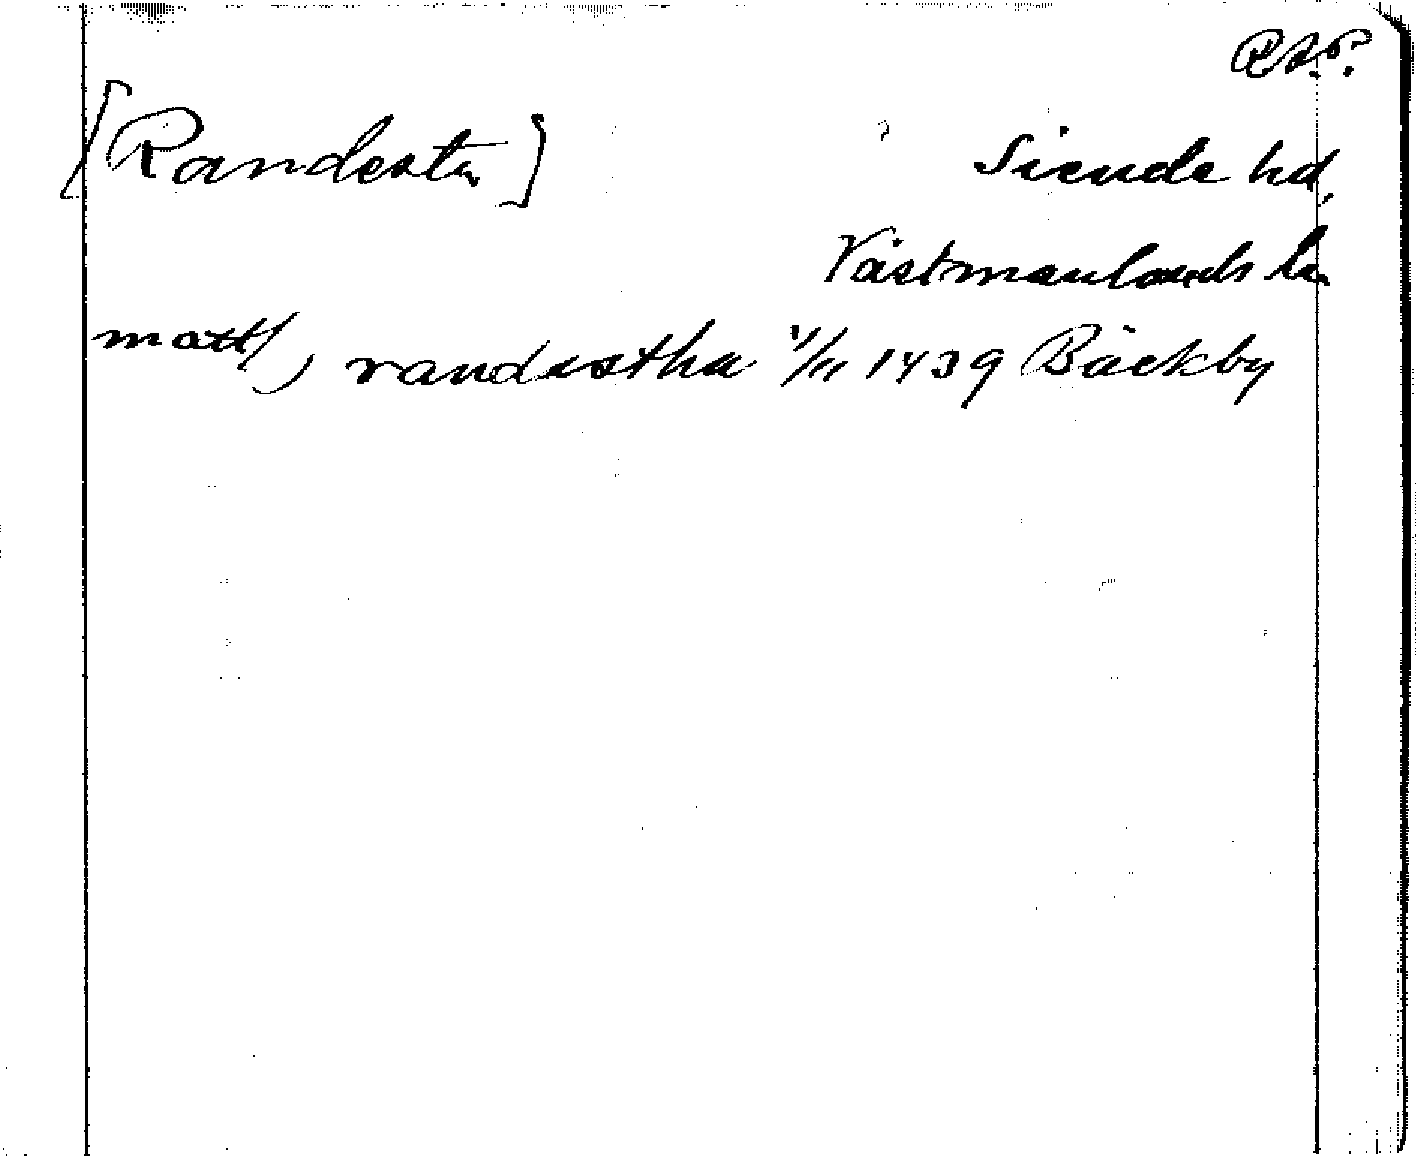 R.A.P.
[Randesta] Siende hd.
Västmanlands län
matt, randestha 1/11 1439 Bäckby